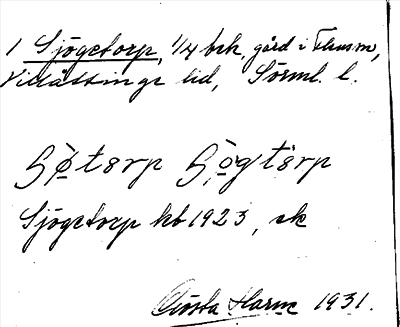 1 Sjögetorp, 1/4 brk, gård i Flens sn,
Villåttinge hd, Sörml. l.
Sø̣tɘrp Sø̣gtɘrp
Sjögetorp kb 1923, ek
Gösta Harne 1931.